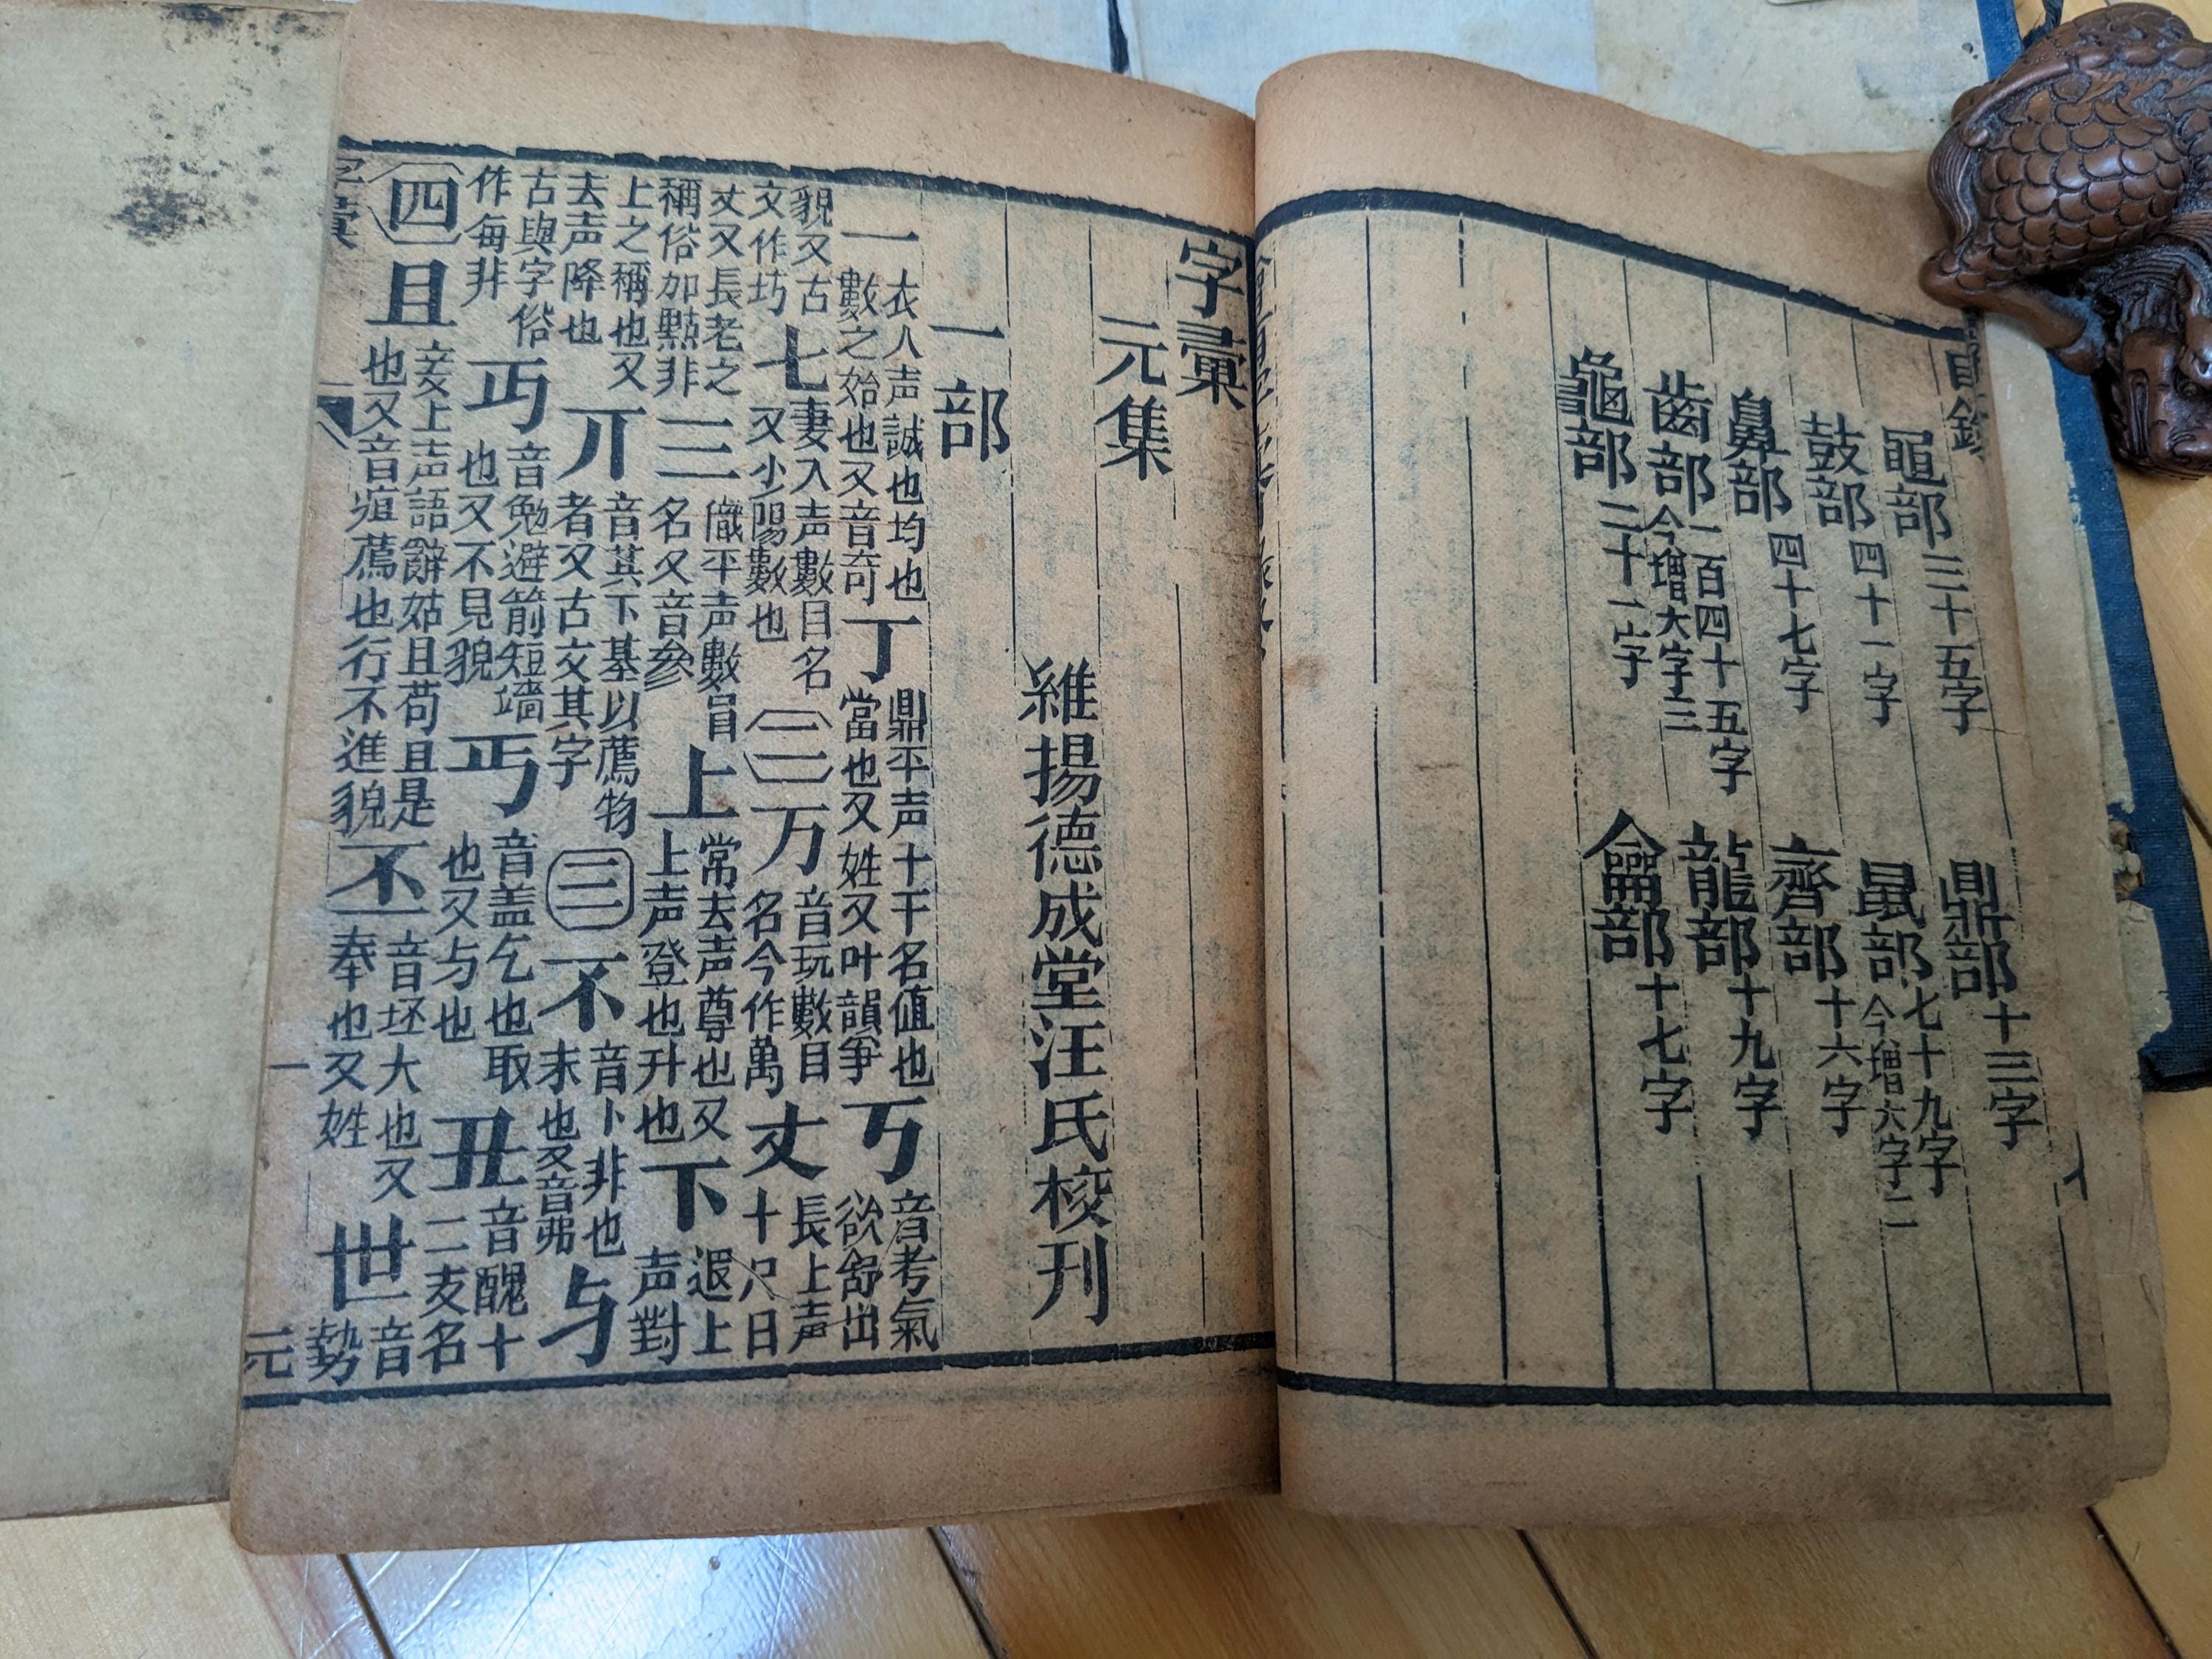 目錄
黽部三十五字 鼎部十三字
鼓部四十一字 鼠部七十九字今增六字二
鼻部四十七字 齊部十六字
齒部一百四十五字今增大字三 龍部十九字
龜部二十一字 龠部十七字
字彙
元集
維揚德成堂汪氏校刊
一部
一衣人声誠也均也數之始也又音奇丁鼎平声十干名値也當也又姓又叶韻爭丂音考氣欲舒出
貌又古文作巧七妻入声數目名又少陽數也二万音玩數目名今作萬丈長上声十尺曰
丈又長老之稱俗加點非三平声數目名又音參上常去声尊也又上声登也升也下遐上声對
上之稱也又去声降也丌音其下基以薦物者又古文其字三不音卜非也末也又音弗与
古與字俗作每非丏音勉避箭短墻也又不見貌丐音盖乞也取也又与也丑音醜十二支名
四且妾上声語辭姑且苟且是也又音疽薦也行不進貌丕音坯大也又奉也又姓世音勢
字彙 一 元